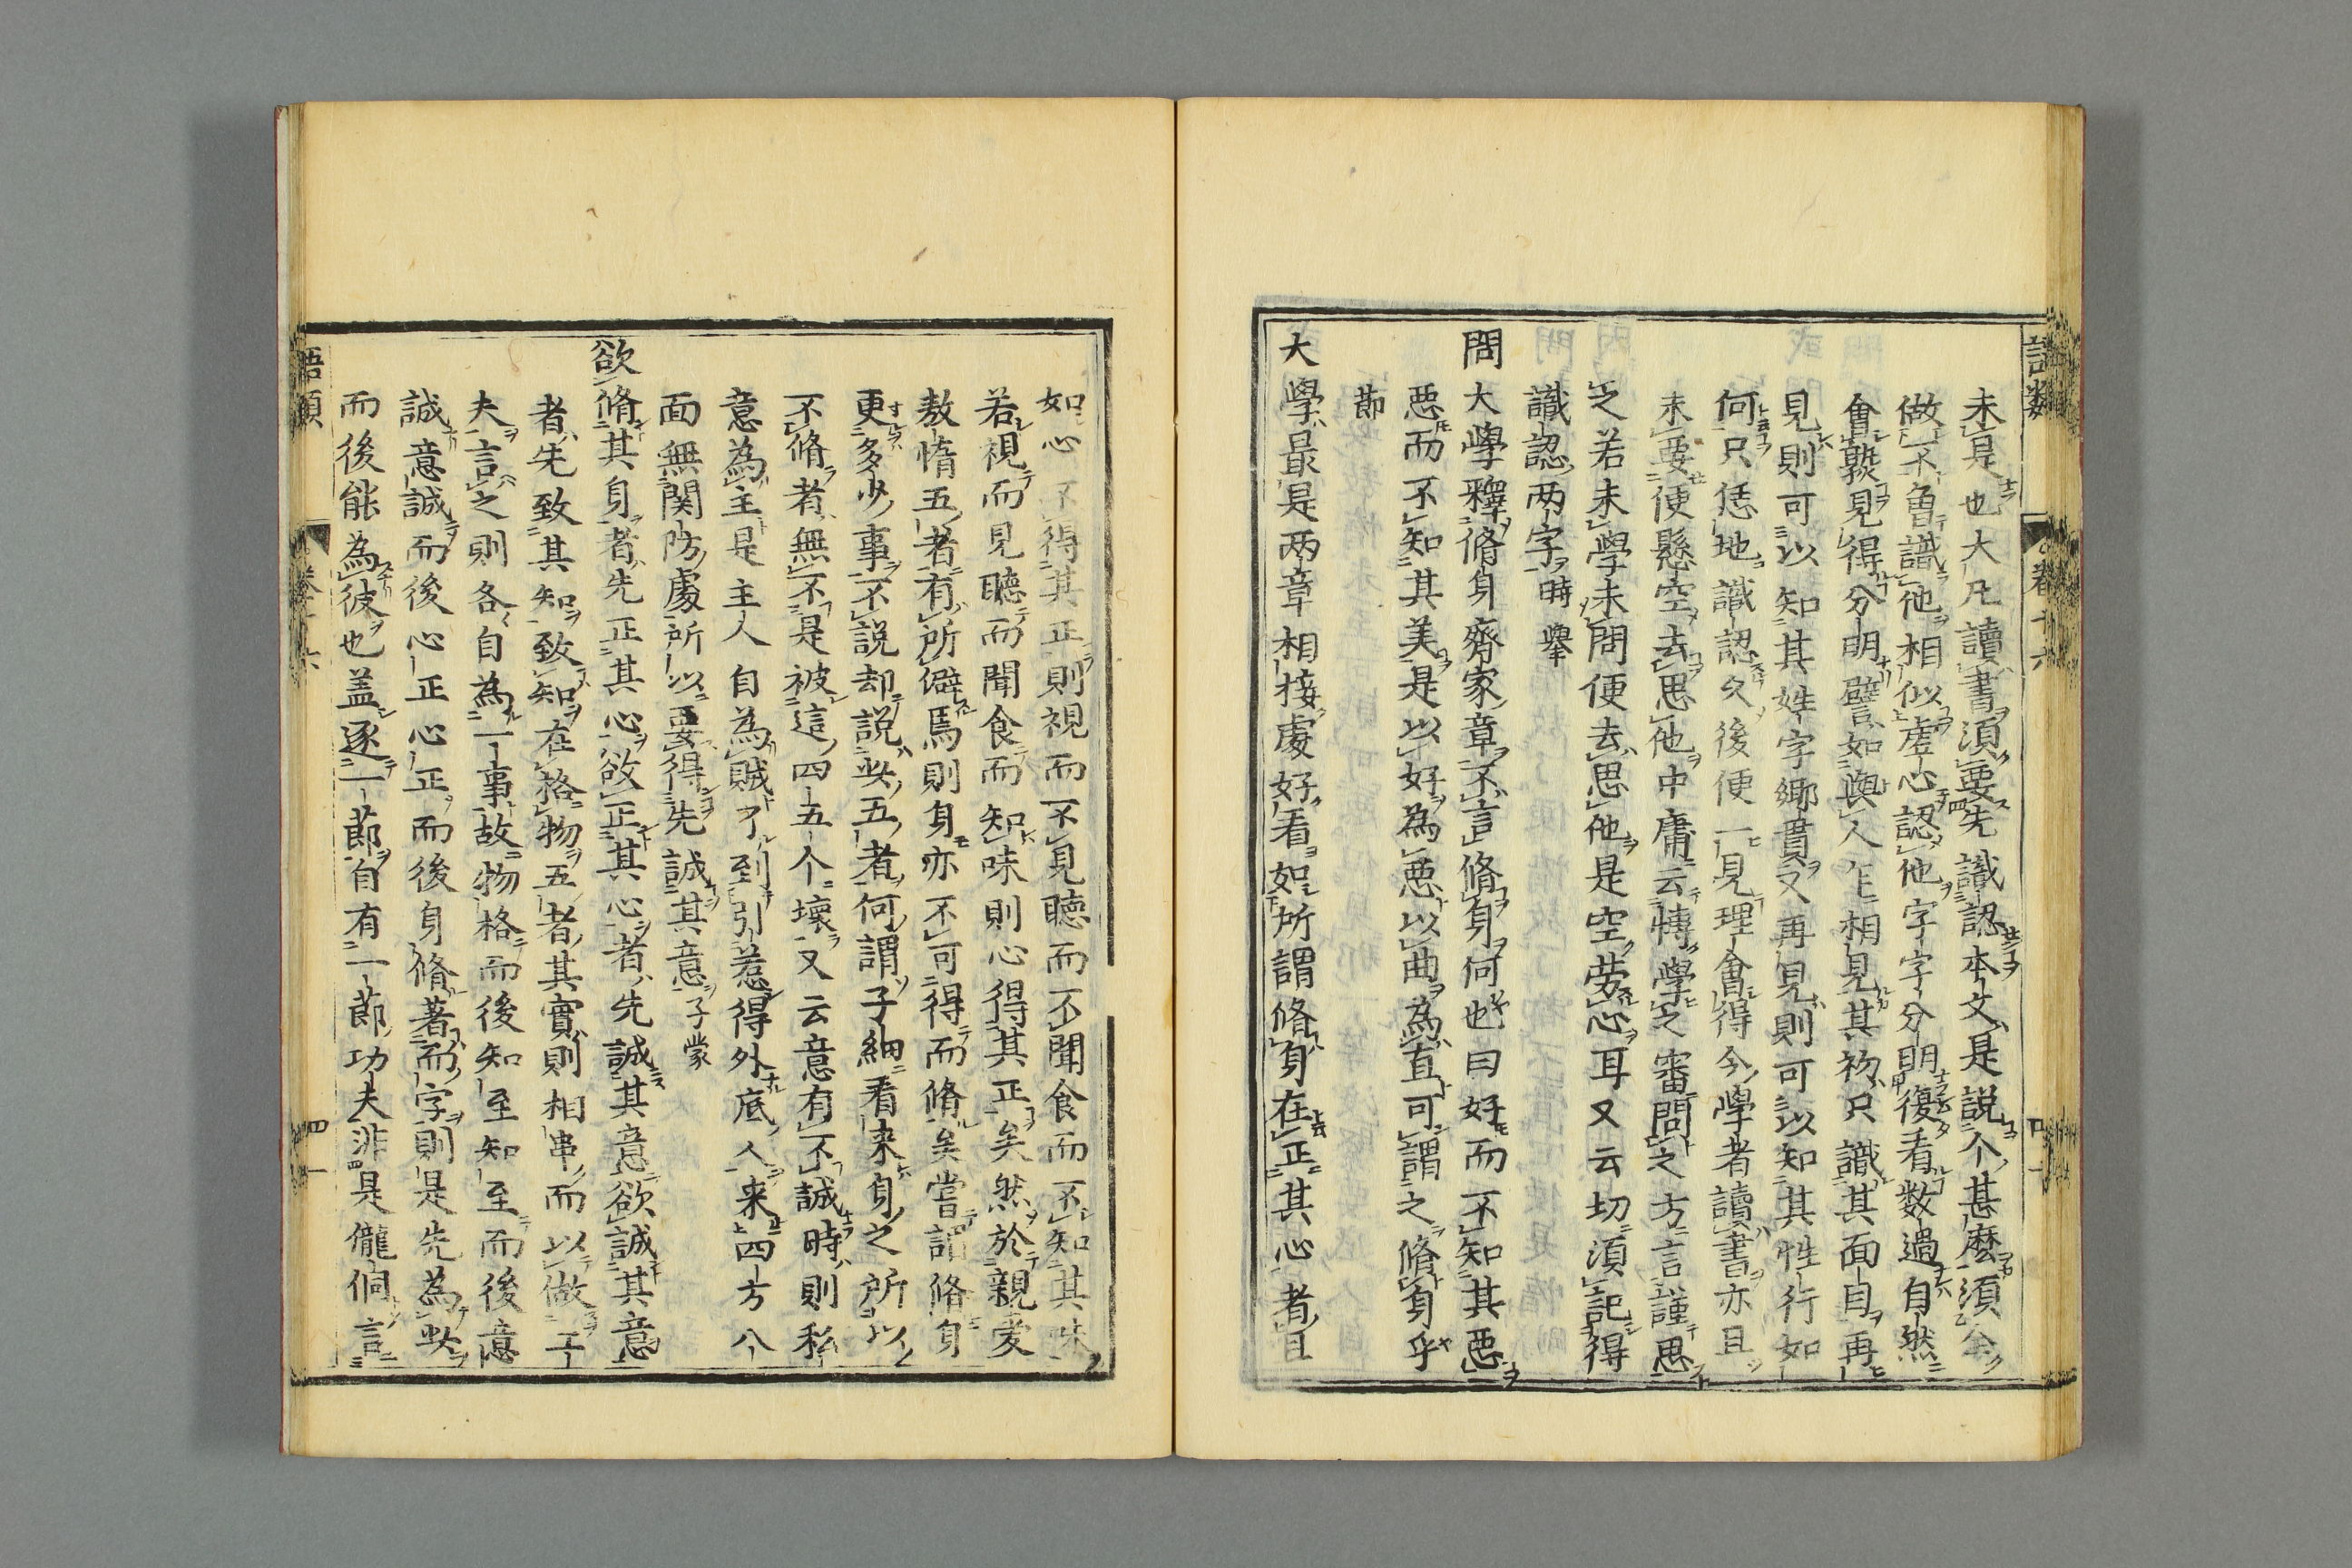 未是也大凡讀書須要先識認本文是説个甚麽須全
做不曾識他相似虚心認他字字分明復看数過自然
會熟見得分明譬如與人乍相見其初只識其面目再
見則可以知其姓字郷貫又再見則可以知其性行如
何只恁地識認久後便一見理會得今學者讀書亦且
未要便懸空去思他中庸云博學之審問之方言謹思
之若未學未問便去思他是空勞心耳又云切須記得
識認两字時舉
問大學釋脩身齊家章不言脩身何也曰好而不知其惡
惡而不知其美是以好為惡以曲為直可謂之脩身乎
節
大學最是两章相接處好看如所謂脩身在正其心者且
語類 卷十六 四一
如心不得其正則視而不見聽而不聞食而不知其味
若視而見聽而聞食而知味則心得其正矣然於親愛
敖惰五者有所僻焉則身亦不可得而脩矣嘗謂脩身
更多少事不説却説此五者何謂子細看来身之所以
不脩者無不是被這四五个壞又云意有不誠時則私
意為主是主人自為賊了到引惹得外底人来四方八
面無関防處所以要得先誠其意子蒙
欲脩其身者先正其心欲正其心者先誠其意欲誠其意
者先致其知致知在格物五者其實則相串而以做工
夫言之則各自為一事故物格而後知至知至而後意
誠意誠而後心正心正而後身脩著而字則是先為此
而後能為彼也盖逐一節自有一節功夫非是儱侗言
語類 卷十六 四一